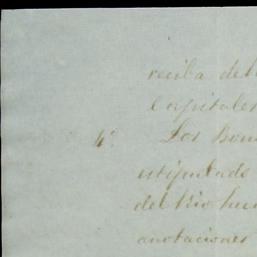 reciba del
Capitales
4.° Los Bon
estipulado
del Rio hu
anotaciones